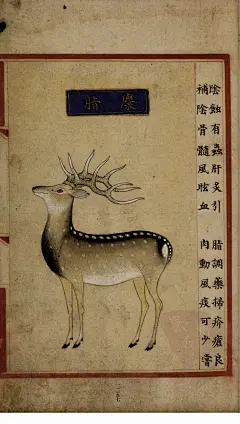 麋脂
陰蝕有蟲肝炙引 脂調藥掃疥瘡良
補陰骨髓風眩血 肉動風痰可少嘗